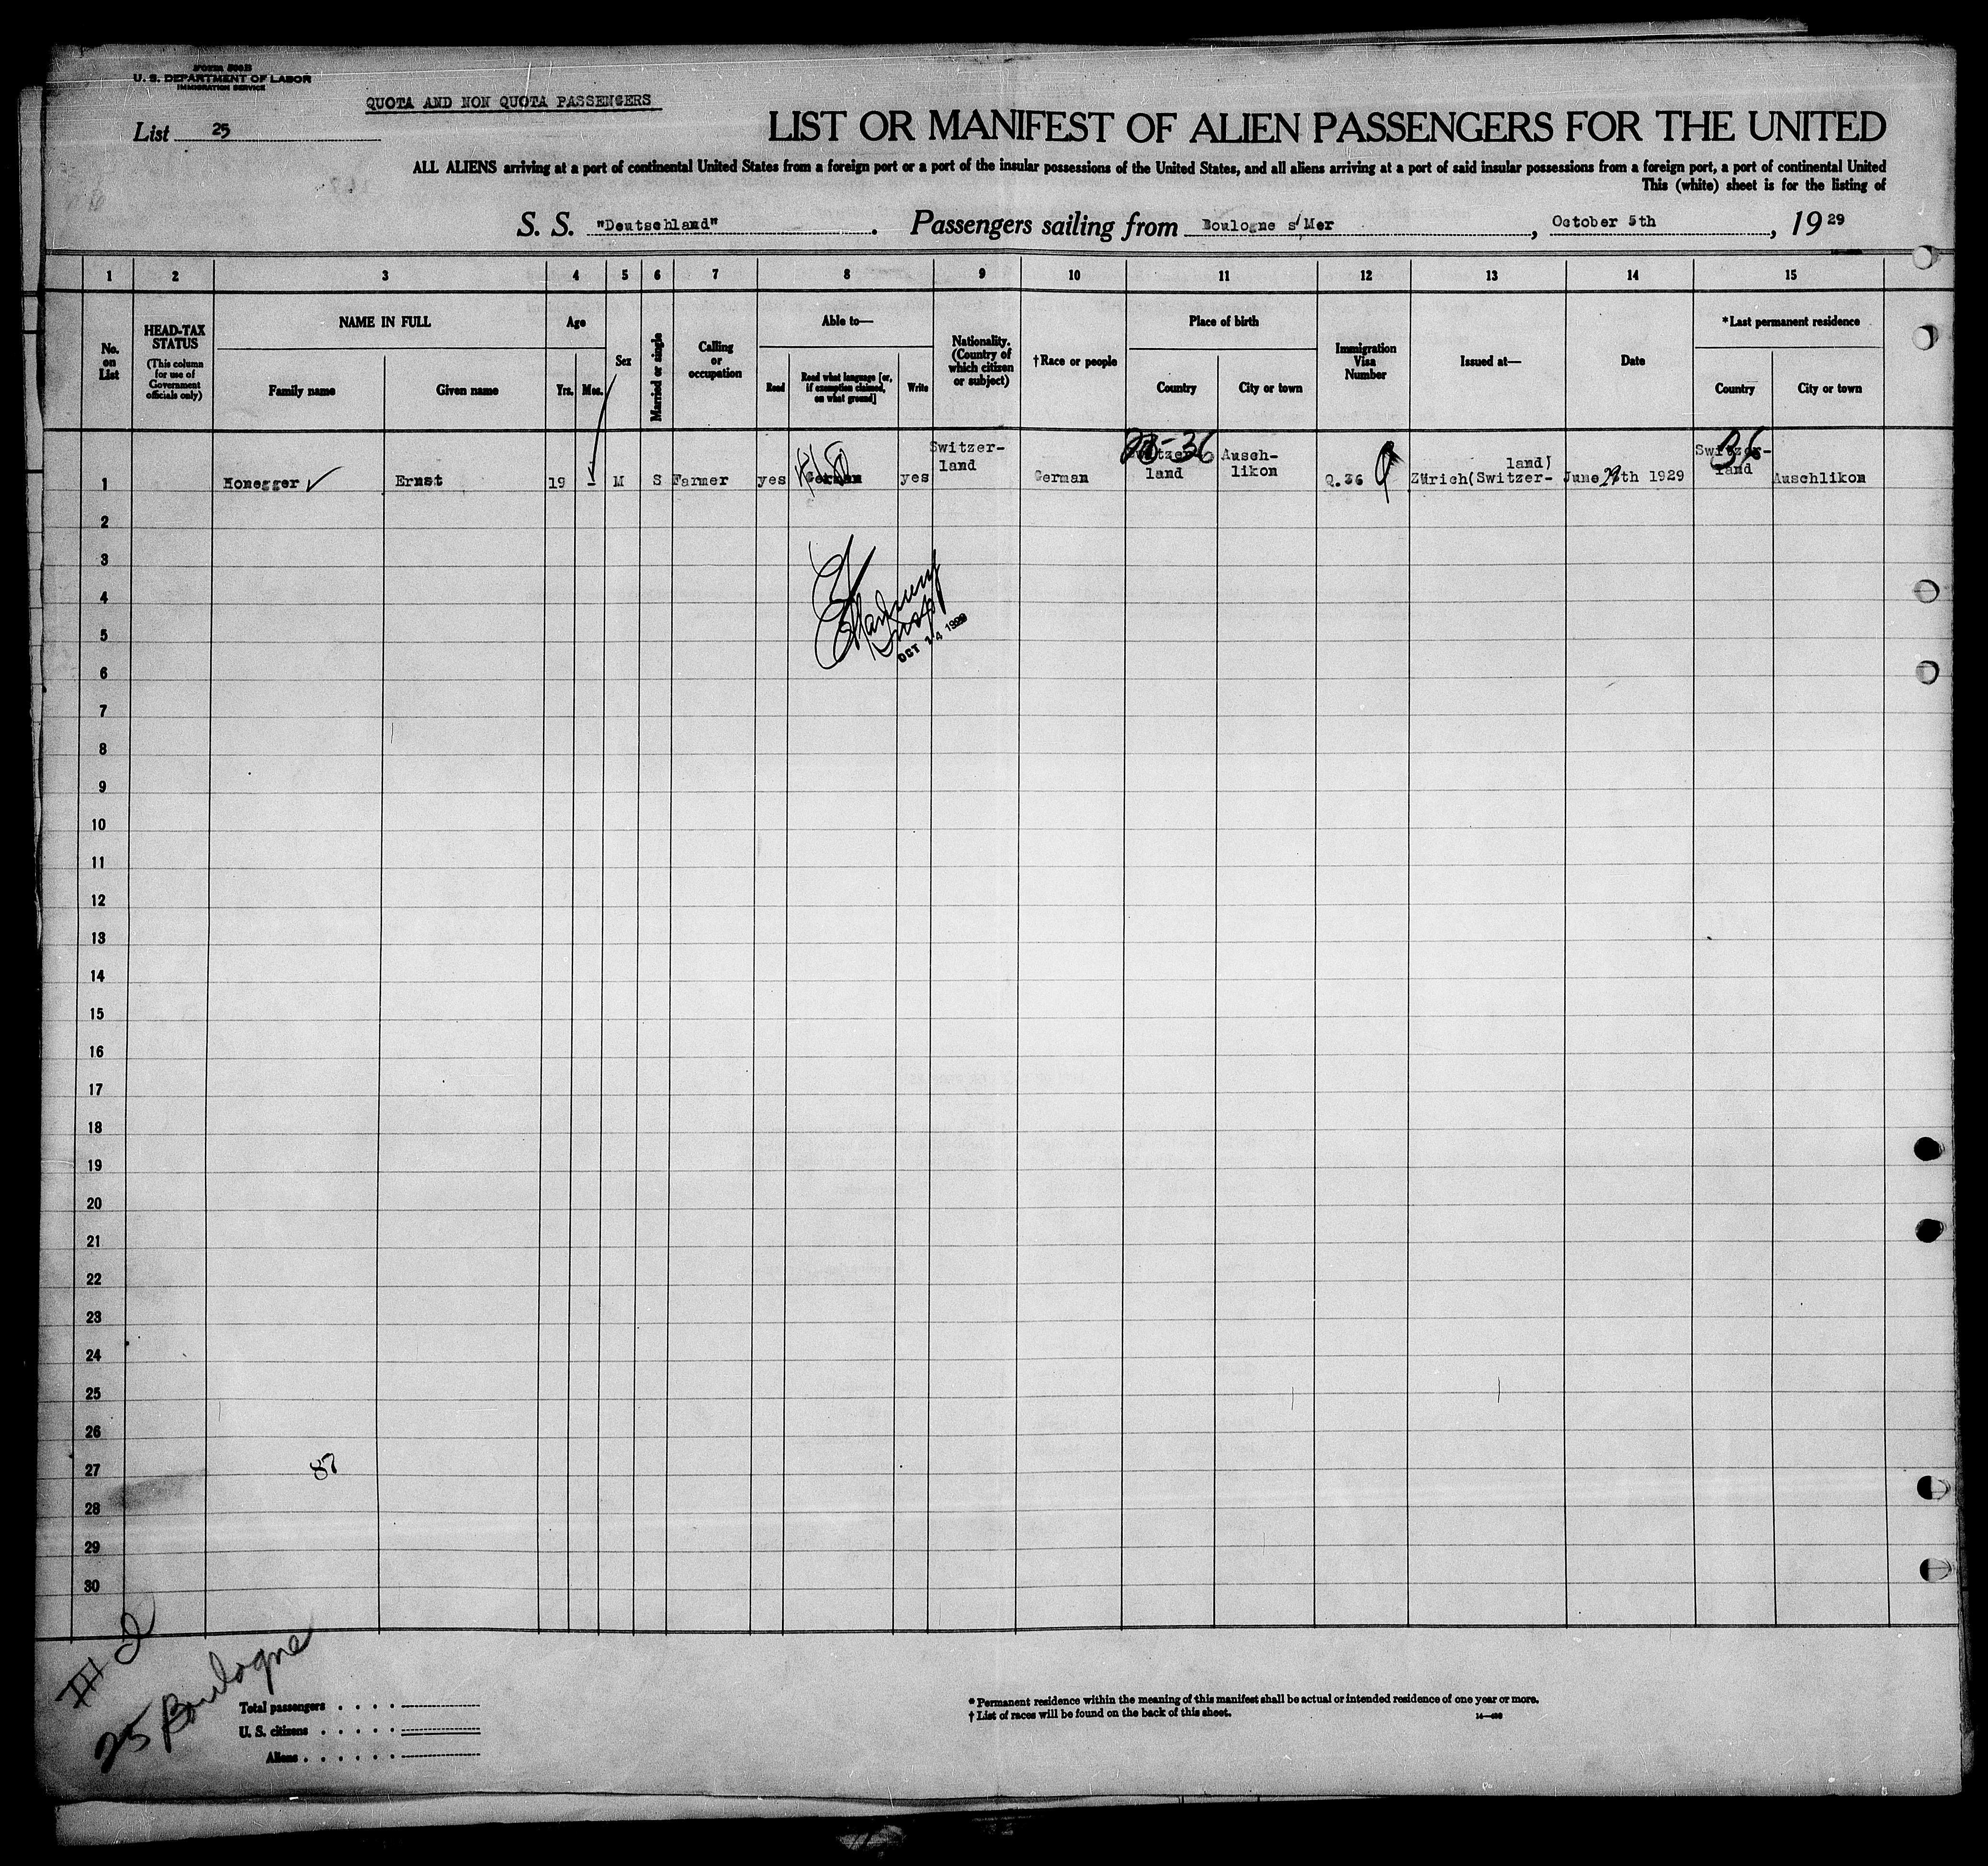 Form 500B
U. S. DEPARTMENT OF LABOR
IMMIGRATION SERVICE
QUOTA AND NON QUOTA PASSENGERS
List 25
LIST OR MANIFEST OF ALIEN PASSENGERS FOR THE UNITED
ALL ALIENS arriving at a port of continental United States from a foreign port or a port of the insular possessions of the United States, and all aliens arriving at a port of said insular possessions from a foreign port, a port of continental United
This (white) sheet is for the listing of
S. S. "Deutschland". Passengers sailing from Boulogne s/Mer, October 5th, 1929
1 2 3 4 5 6 7 8 9 10 11 12 13 14 15
No. on List
HEAD-TAX STATUS
(This column for use of Government officials only)
NAME IN FULL
Family name
Given name
Age
Yrs.
Mos.
Sex
Married or single
Calling or occupation
Able to—
Read
Read what language [or, if exemption claimed, on what ground]
Write
Nationality. (Country of which citizen or subject)
†Race or people
Place of birth
Country
City or town
Immigration Visa Number
Issued at—
Date
*Last permanent residence
Country
City or town
1 Honegger Ernst 19 - M S Farmer yes German yes Switzer-land German Switzer-land Ausch-likon Q.36 Zürich(Switzer-land) June th 1929 Switzer-land Auschlikon
36
36
2
3
4
5
OCT 14 1929
6
7
8
9
10
11
12
13
14
15
16
17
18
19
20
21
22
23
24
25
26
27
87
28
29
30
25 Boulogne
Total passengers
U. S. citizens
Aliens
* Permanent residence within the meaning of this manifest shall be actual or intended residence of one year or more.
† List of races will be found on the back of this sheet.